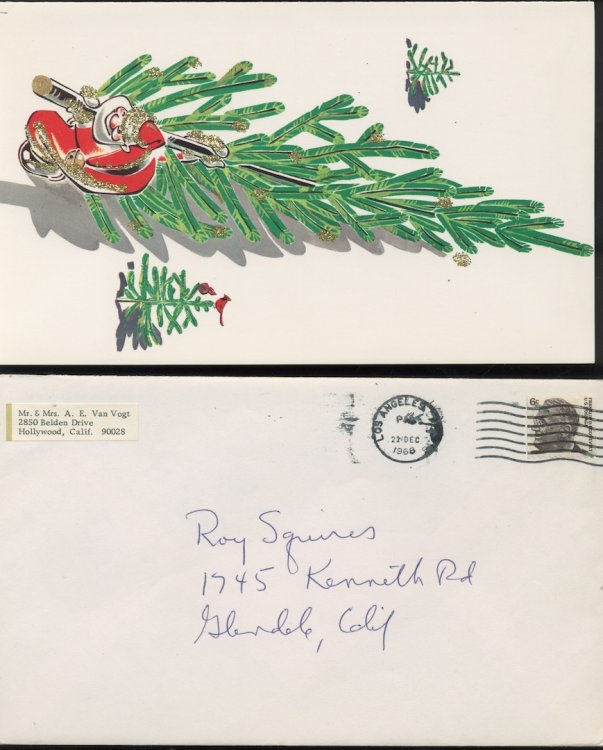 Mr. & Mrs. A. E. Van Vogt
2850 Belden Drive
Hollywood, Calif. 90028
LOS ANGELES, CA
PM
22 DEC
1968
6c
Roy Squires
1745 Kenneth Rd
Glendale, Calif